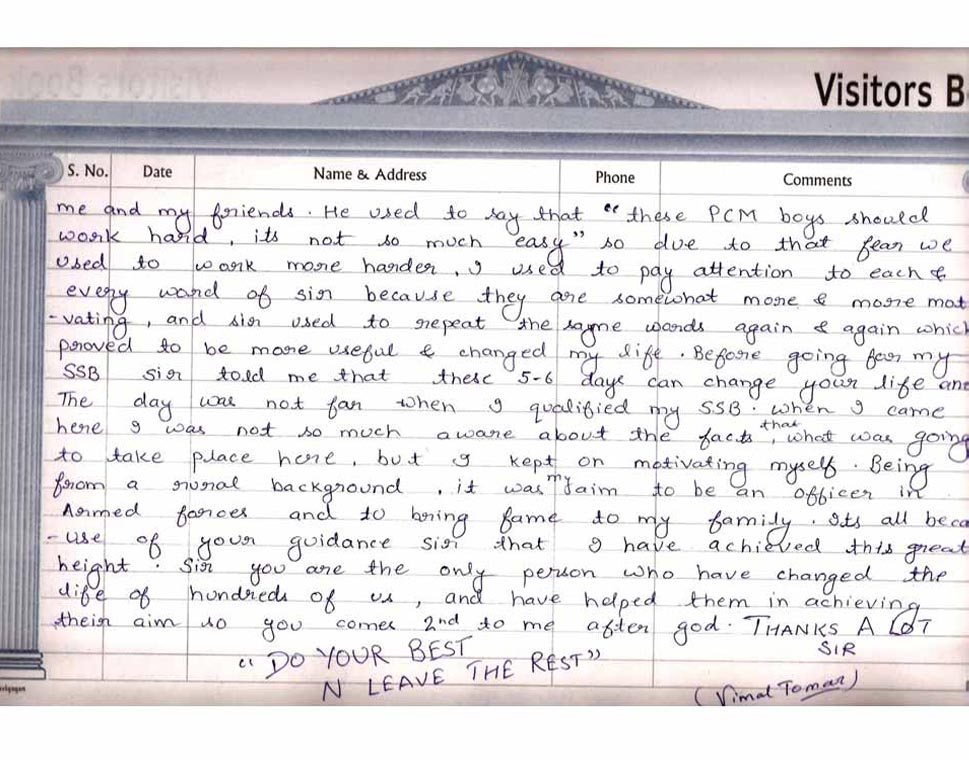 Visitors B
S. No. Date Name & Address Phone Comments
me and my friends. He used to say that "these PCM boys should
work hard, its not so much easy" so due to that fear we
used to work more harder, I used to pay attention to each &
every word of sir because they are somewhat more & more mot
-vating, and sir used to repeat the same words again & again which
proved to be more useful & changed my life. Before going for my
SSB sir told me that these 5-6 days can change your life and
The day was not far when I qualified my SSB. when I came
here I was not so much aware about the facts that, what was going
to take place here, but I kept on motivating myself. Being
from a rural background, it was my aim to be an officer in
Armed forces and to bring fame to my family. Its all beca
-use of your guidance sir that I have achieved this great
height. Sir you are the only person who have changed the
life of hundreds of us, and have helped them in achieving
their aim so you comes 2nd to me after god. THANKS A LOT
SIR
"DO YOUR BEST
N LEAVE THE REST"
(Vimal Tomar)